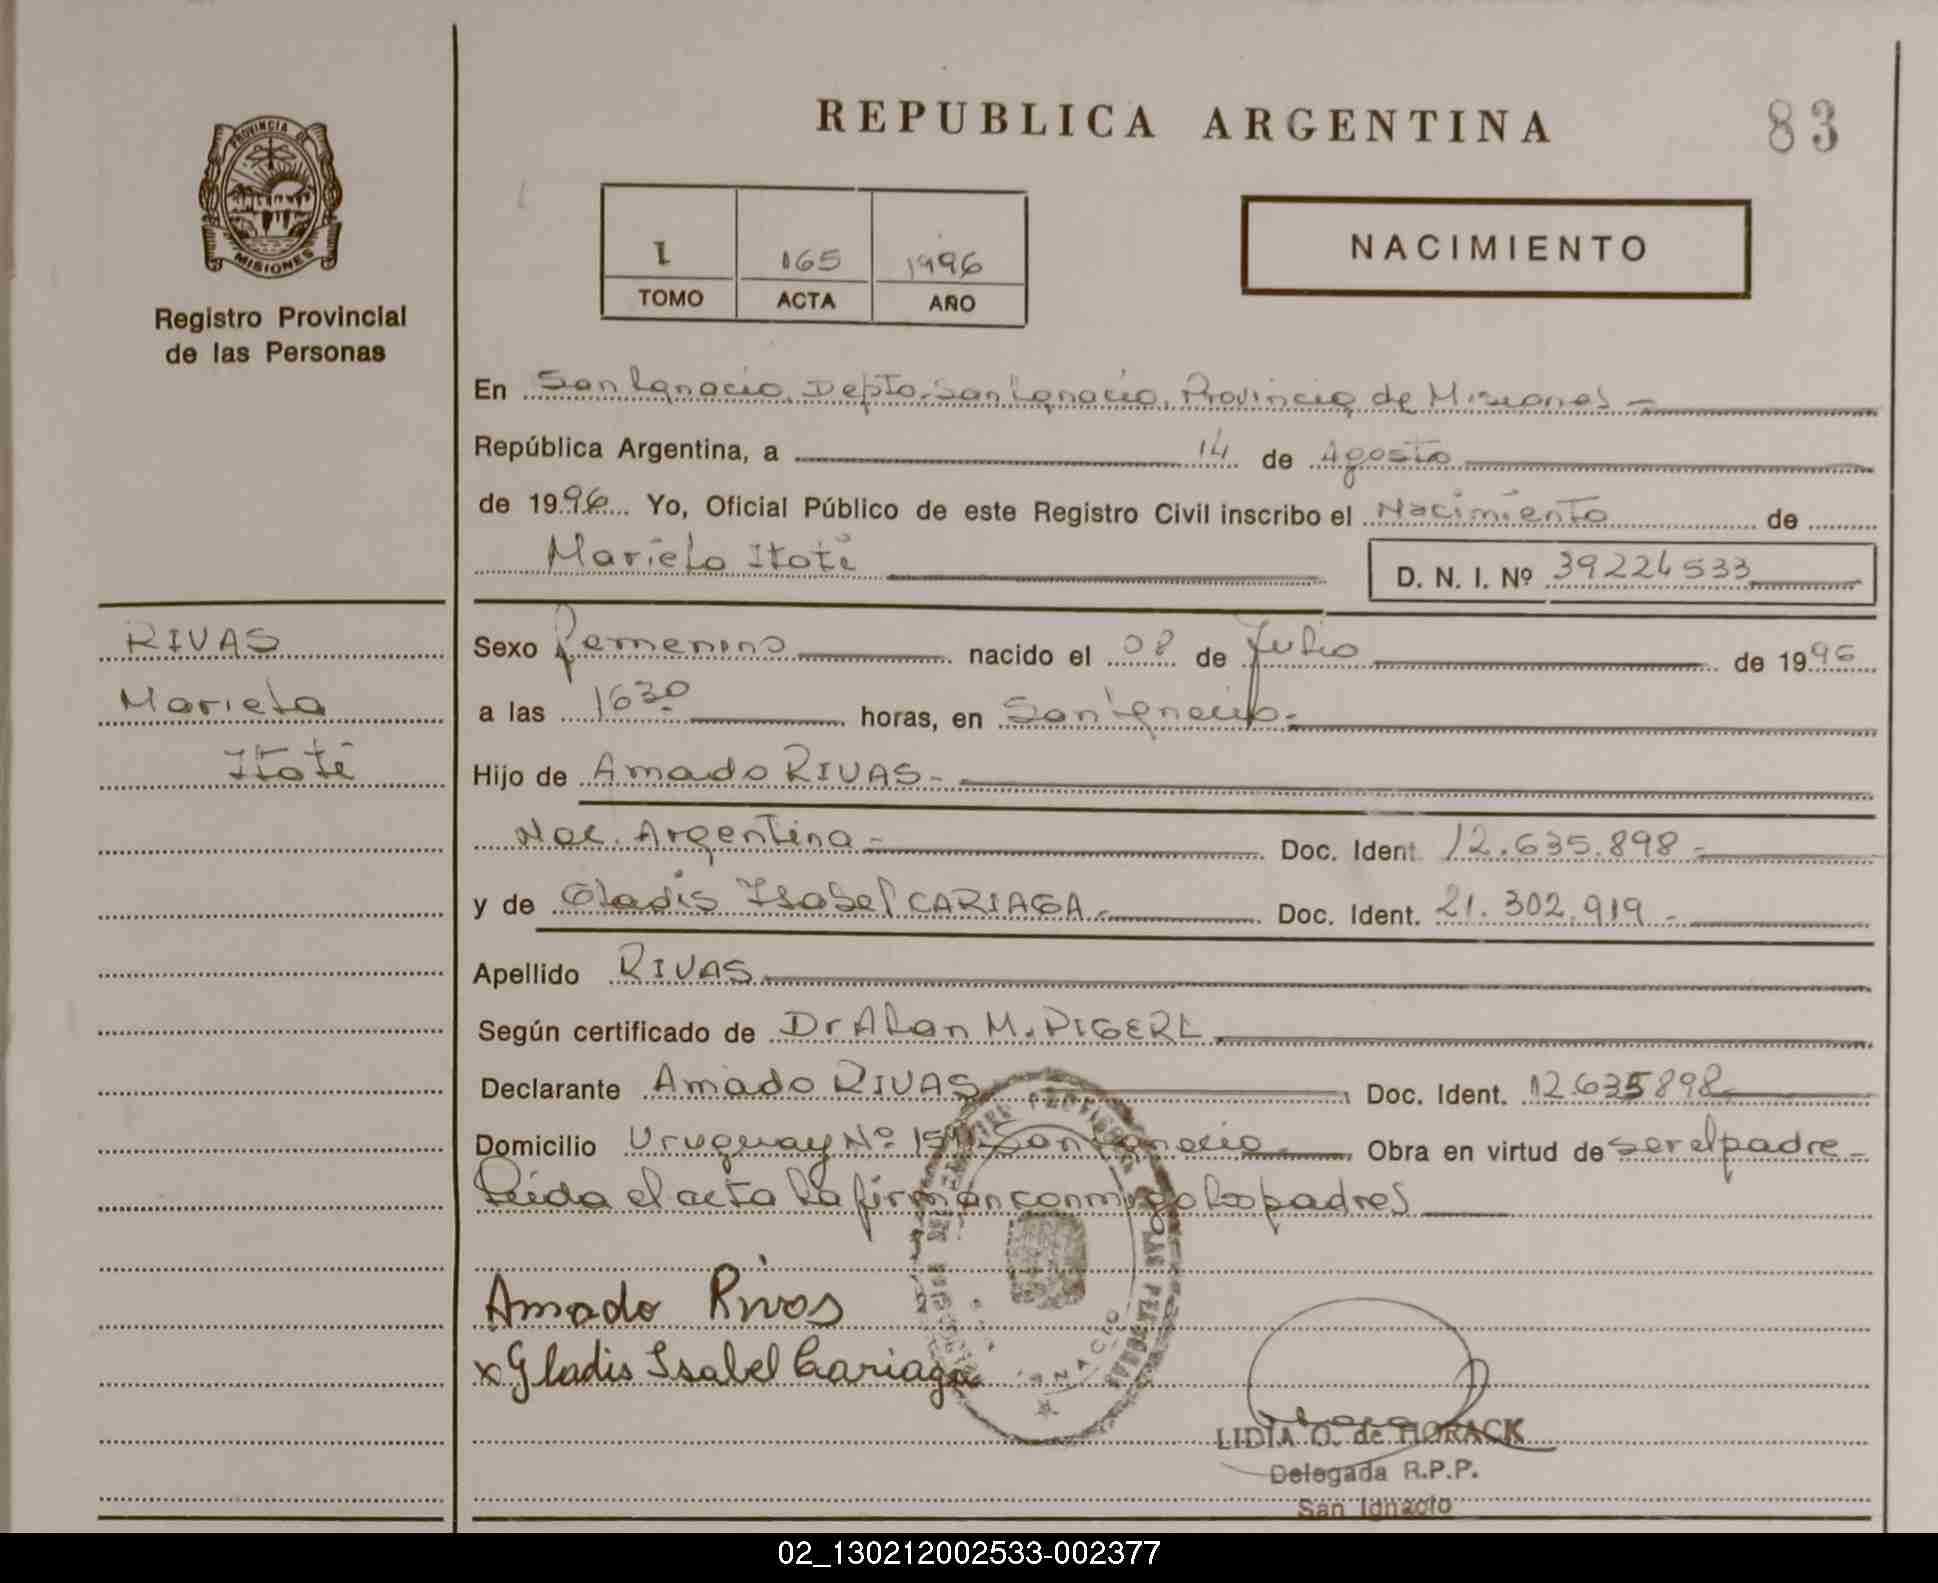 REPUBLICA ARGENTINA
83
PROVINCIA DE
MISIONES
Registro Provincial
de las Personas
1 165 1996
TOMO ACTA AÑO
NACIMIENTO
En San Ignacio, Depto. San Ignacio, Provincia de Misiones -
República Argentina, a 14 de Agosto
de 1996 Yo, Oficial Público de este Registro Civil inscribo el Nacimiento de
Mariela Itatí D. N. I. Nº 39224533
RIVAS
Mariela
Itatí
Sexo femenino nacido el 08 de Julio de 1996
a las 1630 horas, en San Ignacio -
Hijo de Amado RIVAS -
Nac. Argentina - Doc. Ident. 12.635.898 -
y de Gladis Isabel CARIAGA - Doc. Ident. 21.302.919 -
Apellido RIVAS
Según certificado de Dr Alan M.
Declarante Amado RIVAS Doc. Ident. 12.635898
Domicilio Uruguay Nº San Ignacio - Obra en virtud de ser el padre -
Leída el acta la firman conmigo los padres
Amado Rivas
x Gladis Isabel Cariaga
LIDIA O. de HORACK
Delegada R.P.P.
San Ignacio
02_130212002533-002377